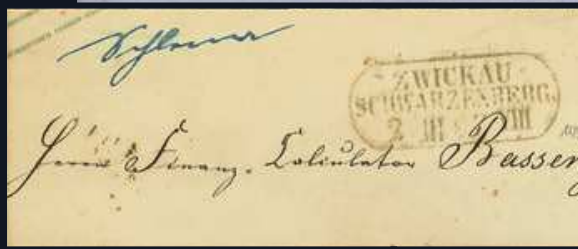 Schlema
ZWICKAU
SCHWARZENBERG.
2 III VIII
Herrn Finanz. Calculator Bassen